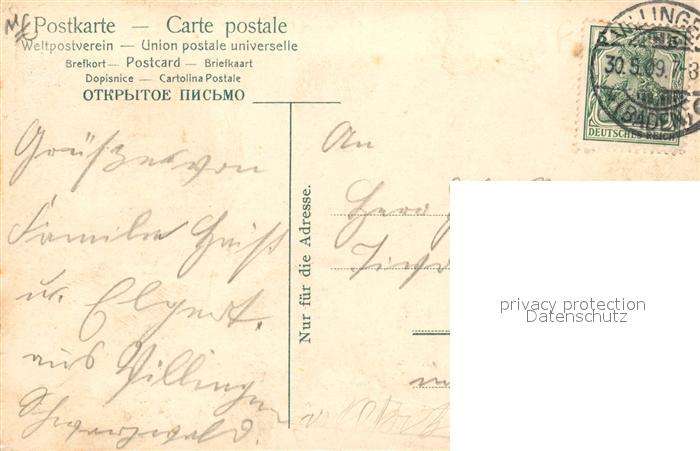 Postkarte — Carte postale
Weltpostverein — Union postale universelle
Brefkort — Postcard — Briefkaart
Dopisnice — Cartolina Postale
ОТКРЫТОЕ ПИСЬМО
VILLINGEN
30.5.09.7-8
(BADEN)
5
DEUTSCHES REICH
Grüße von
Familie
u.
aus Villingen
Schwarzwald.
Nur für die Adresse.
An
Herr
in
privacy protection
Datenschutz